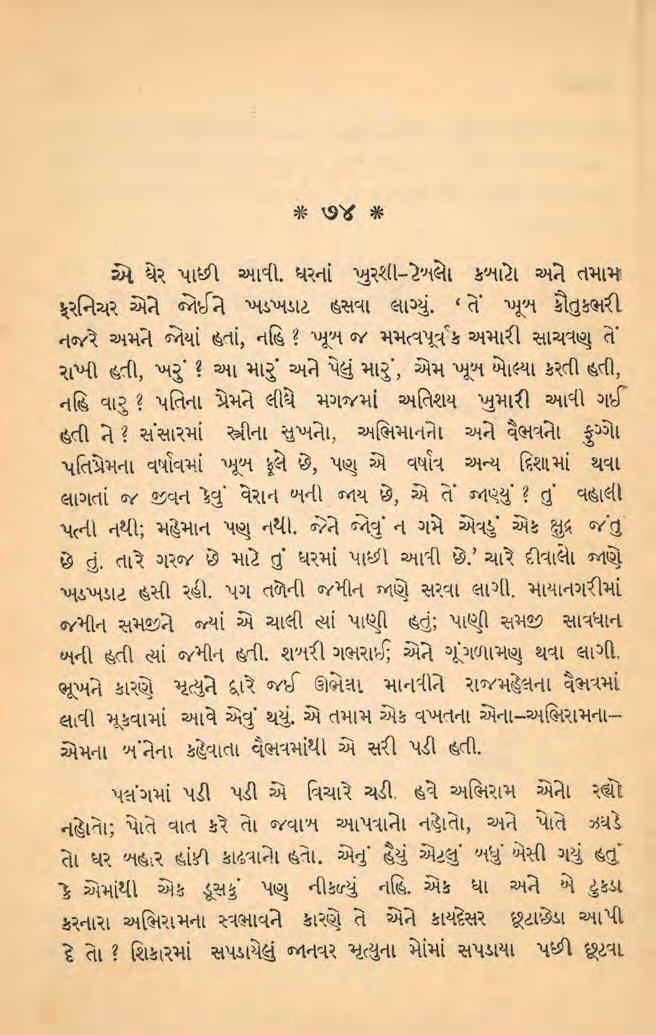 * ૭૪ *
એ ઘેર પાછી આવી. ઘરનાં ખુરશી-ટેબલો કબાટો અને તમામ
ફરનિચર એને જોઈને ખડખડાટ હસવા લાગ્યું. ‘તેં ખૂબ કૌતુકભરી
નજરે અમને જોયાં હતાં, નહિ ? ખૂબ જ મમત્વપૂર્વક અમારી સાચવણ તેં
રાખી હતી, ખરું ? આ મારું અને પેલું મારું, એમ ખૂબ બોલ્યા કરતી હતી,
નહિ વારુ ? પતિના પ્રેમને લીધે મગજમાં અતિશય ખુમારી આવી ગઈ
હતી ને ? સંસારમાં સ્ત્રીના સુખનો, અભિમાનનો અને વૈભવનો ફુગ્ગો
પતિપ્રેમના વર્ષાવમાં ખૂબ ફૂલે છે, પણ એ વર્ષાવ અન્ય દિશામાં થવા
લાગતાં જ જીવન કેવું વેરાન બની જાય છે, એ તેં જાણ્યું ? તું વહાલી
પત્ની નથી; મહેમાન પણ નથી. જેને જોવું ન ગમે એવડું એક ક્ષુદ્ર જંતુ
છે તું. તારે ગરજ છે માટે તું ઘરમાં પાછી આવી છે.’ ચારે દીવાલો જાણે
ખડખડાટ હસી રહી. પગ તળેની જમીન જાણે સરવા લાગી. માયાનગરીમાં
જમીન સમજીને જ્યાં એ ચાલી ત્યાં પાણી હતું; પાણી સમજી સાવધાન
બની હતી ત્યાં જમીન હતી. શબરી ગભરાઈ; એને ગૂંગળામણ થવા લાગી.
ભૂખને કારણે મૃત્યુને દ્વારે જઈ ઊભેલા માનવીને રાજમહેલના વૈભવમાં
લાવી મૂકવામાં આવે એવું થયું. એ તમામ એક વખતના એના–અભિરામના–
એમના બંનેના કહેવાતા વૈભવમાંથી એ સરી પડી હતી.
પલંગમાં પડી પડી એ વિચારે ચડી. હવે અભિરામ એનો રહ્યો
નહોતો; પોતે વાત કરે તો જવાબ આપવાનો નહોતો, અને પોતે ઝઘડે
તો ઘર બહાર હાંકી કાઢવાનો હતો. એનું હૈયું એટલું બધું બેસી ગયું હતું
કે એમાંથી એક ડૂસકું પણ નીકળ્યું નહિ. એક ઘા અને બે ટુકડા
કરનારા અભિરામના સ્વભાવને કારણે તે એને કાયદેસર છૂટાછેડા આપી
દે તો ? શિકારમાં સપડાયેલું જાનવર મૃત્યુના મોંમાં સપડાયા પછી છૂટવા